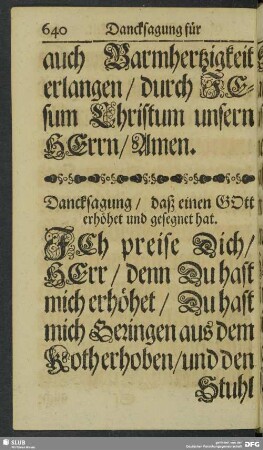 640 Dancksagung für
auch Barmhertzigkeit
erlangen / durch JE-
sum Christum unsern
HErrn / Amen.
Dancksagung / daß einen GOtt
erhöhet und gesegnet hat.
JCh preise Dich /
HErr / denn Du hast
mich erhöhet / Du hast
mich Geringen aus dem
Koth erhoben / und den
Stuhl
SLUB
DFG